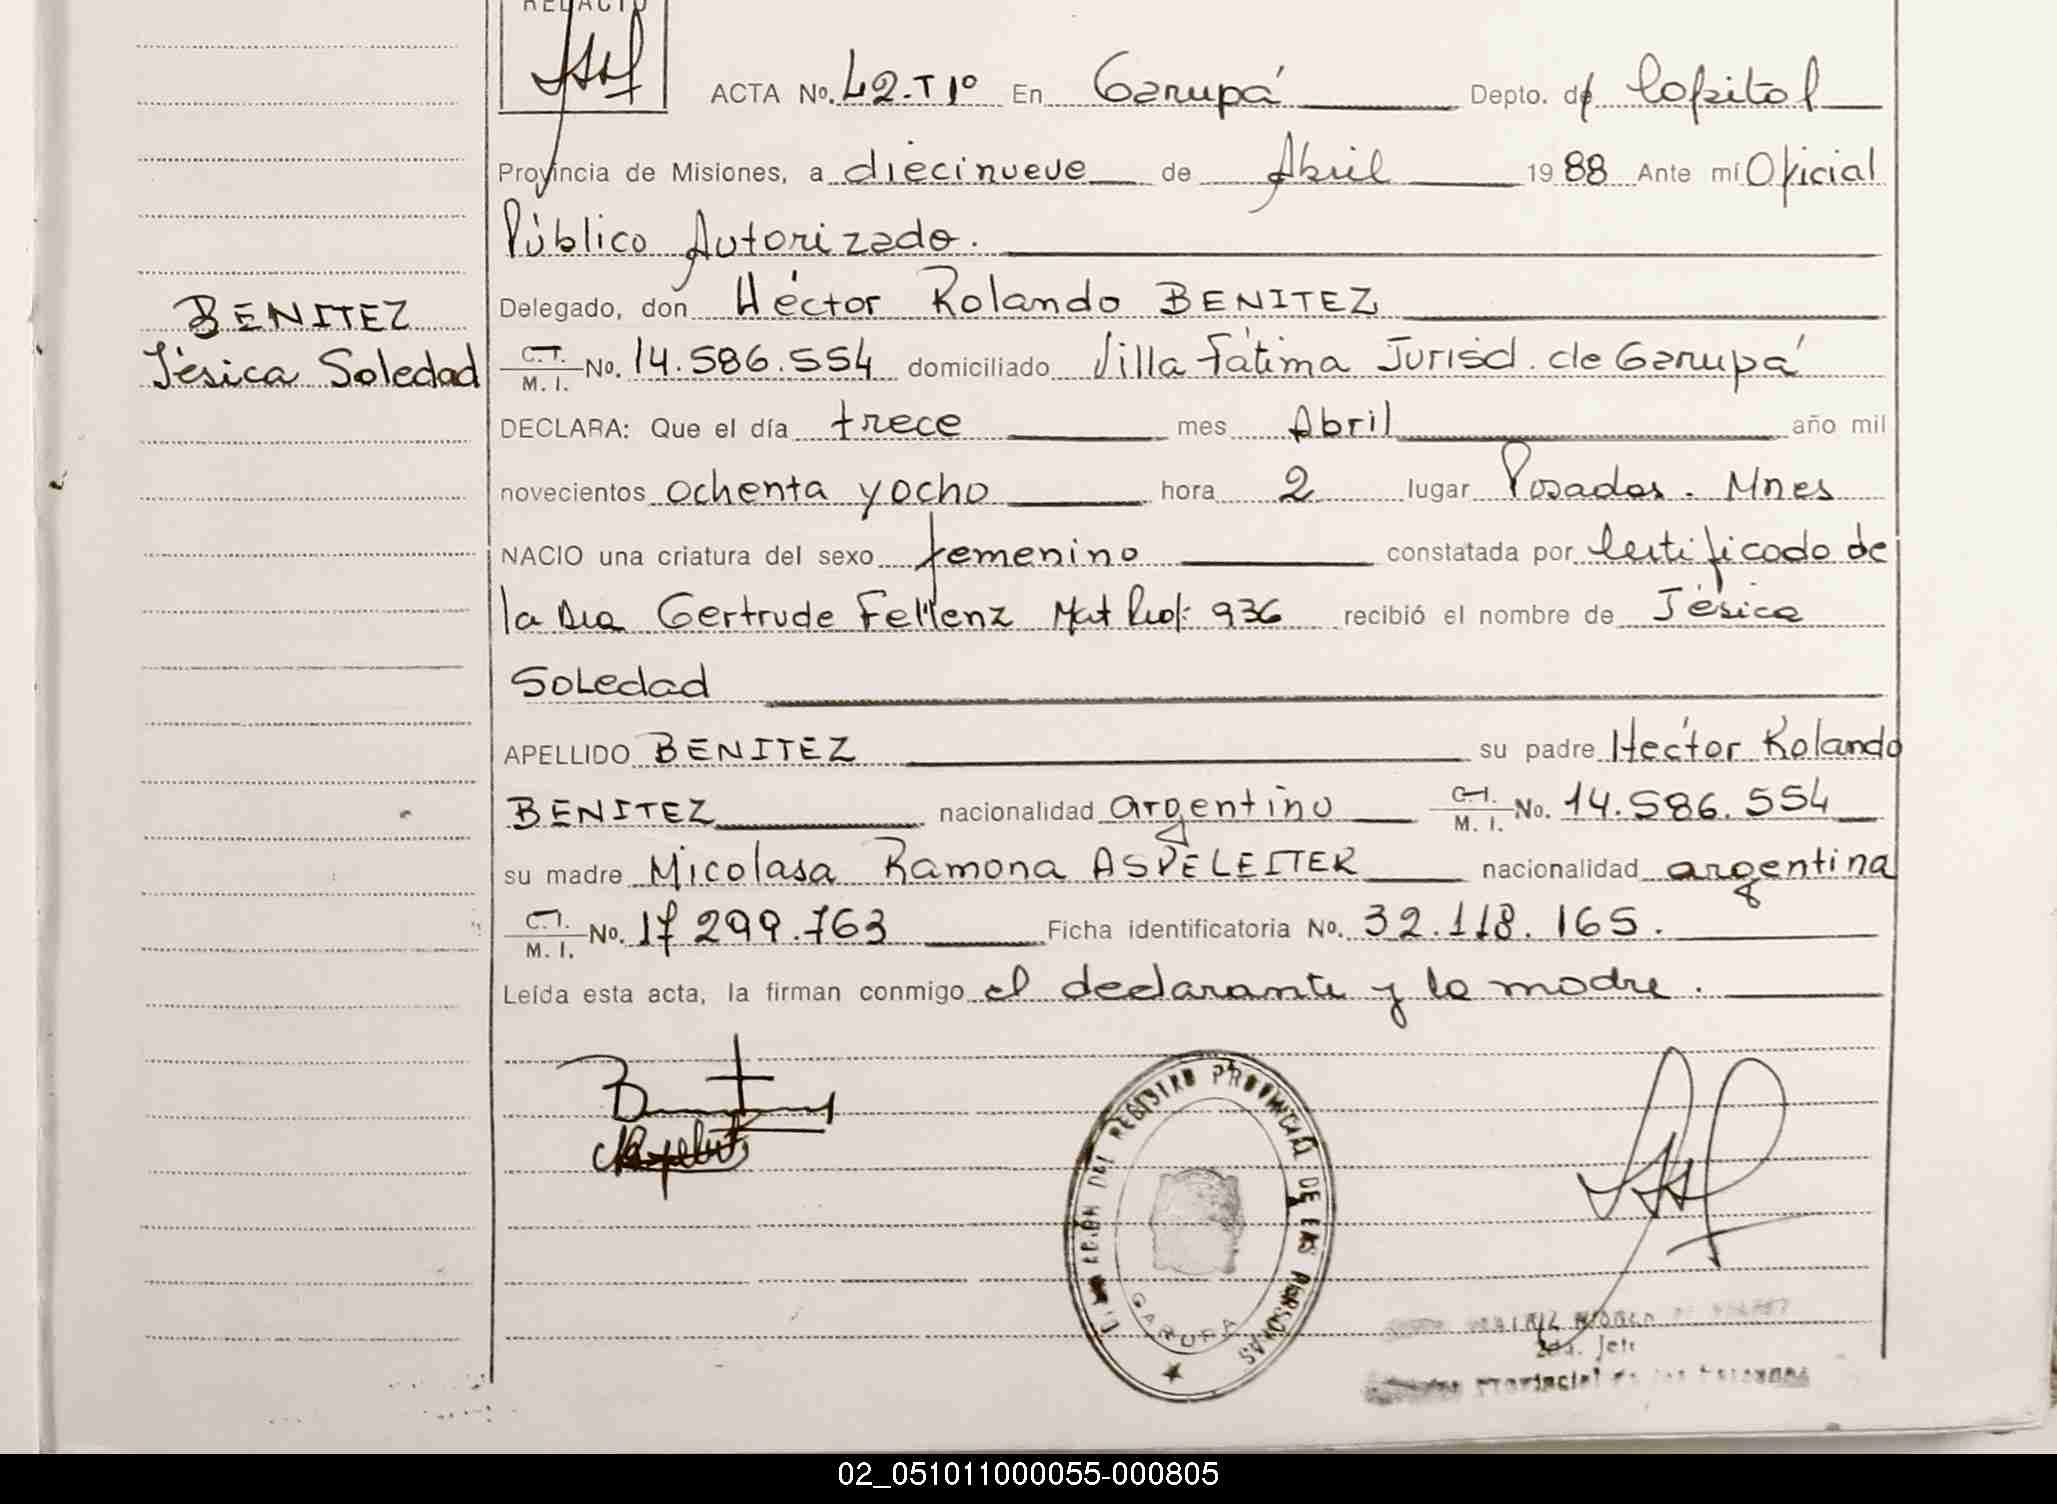 REDACTO
ACTA No. 42.T 1º En Garupá Depto. de Capital
Provincia de Misiones, a diecinueve de Abril 1988 Ante mí Oficial
Público Autorizado.
Delegado, don Héctor Rolando BENITEZ
BENITEZ
Jésica Soledad
C.I. M. I. No. 14.586.554 domiciliado Villa Fátima Jurisd. de Garupá
DECLARA: Que el día trece mes Abril año mil
novecientos ochenta y ocho hora 2 lugar Posadas. Mnes
NACIO una criatura del sexo femenino constatada por Certificado de
la Dra Gertrude Fellenz Mat Prof: 936 recibió el nombre de Jésica
Soledad
APELLIDO BENITEZ su padre Héctor Rolando
BENITEZ nacionalidad argentino C.I. M. I. No. 14.586.554
su madre Nicolasa Ramona ASPELEITER nacionalidad argentina
C.I. M. I. No. 17 299.763 Ficha identificatoria No. 32.118.165.
Leída esta acta, la firman conmigo el declarante y la madre.
DEL REGISTRO PROVINCIAL DE LAS PERSONAS
GARUPA
2da. Jefe
Provincial de las Personas
02_051011000055-000805